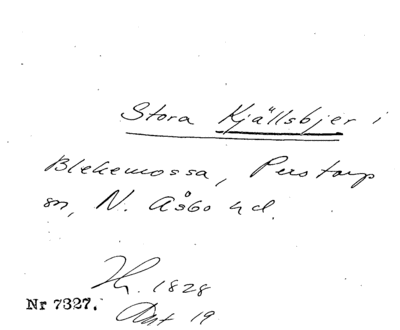 Stora Kjällsbjer i
Blekemossa, Perstorp
sn, N. Åsbo hd.
1828
Nr 7327.
19